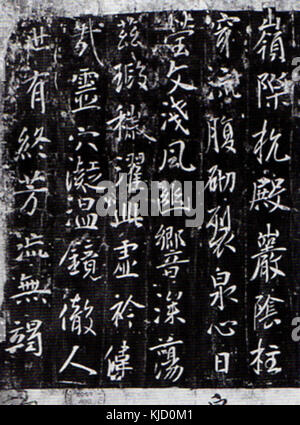 嶺際抗殿巖陰柱
穿流腹砌裂泉心日
瑩文淺風幽響深蕩
茲瑕穢濯此虛衿偉
哉靈穴凝溫鏡徹人
世有終芳流無竭
alamy
KJD0M1